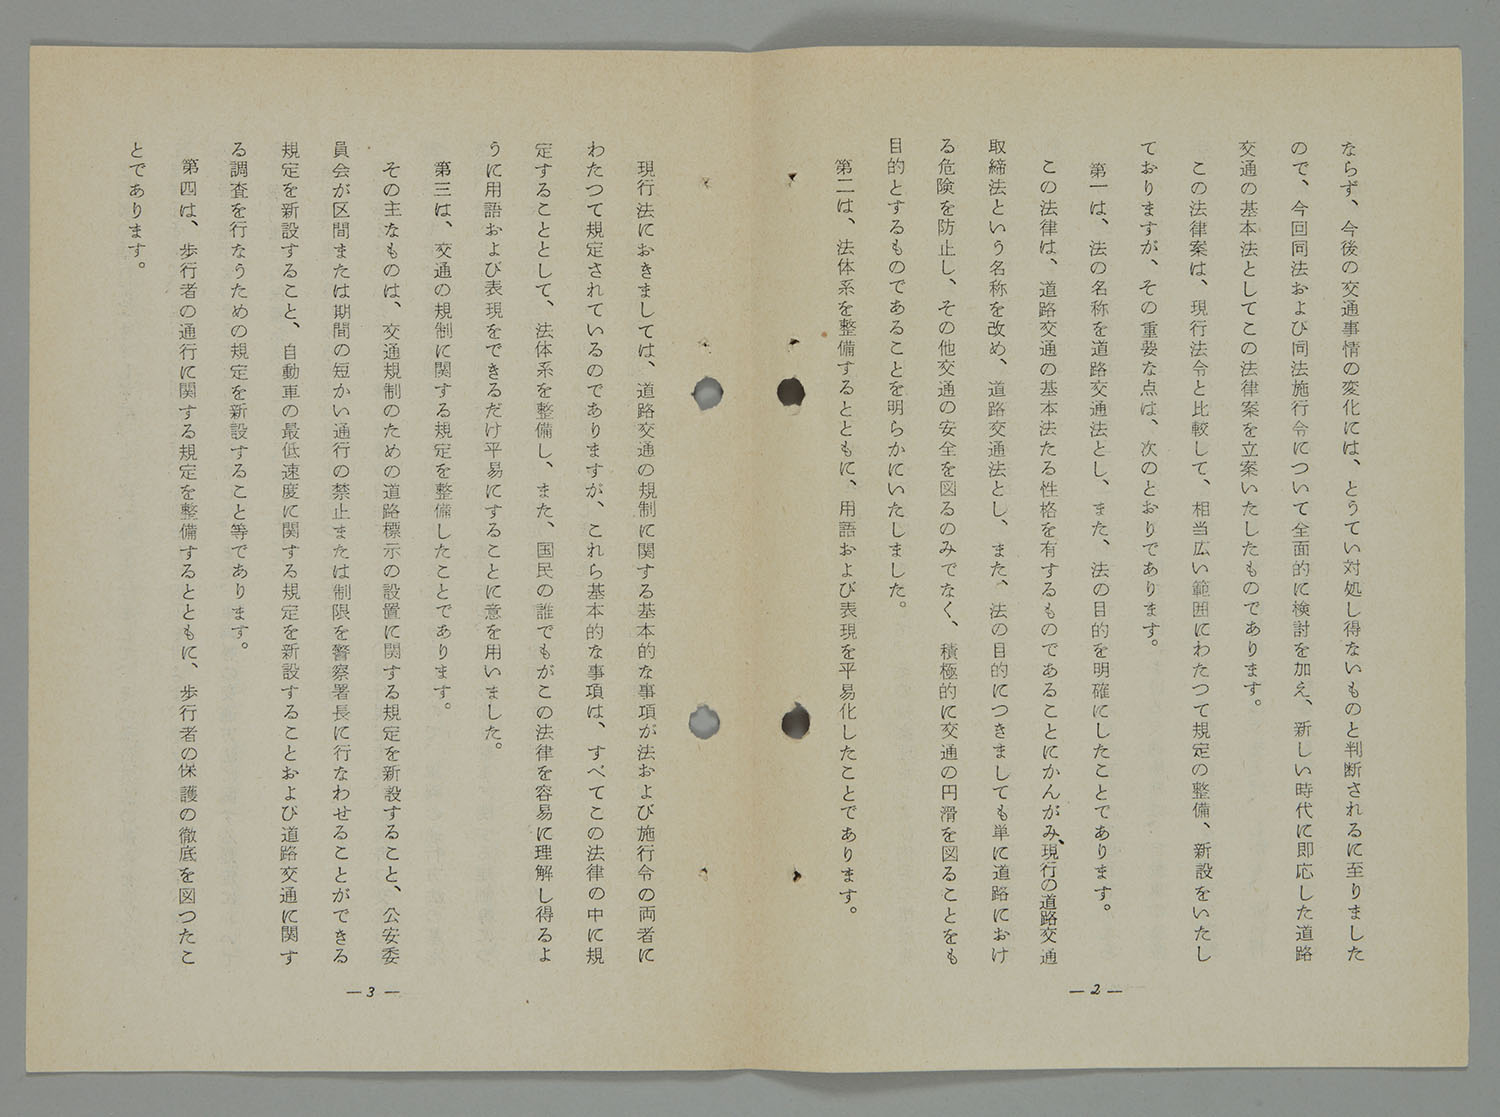 ならず、今後の交通事情の変化には、とうてい対処し得ないものと判断されるに至りました
ので、今回同法および同法施行令について全面的に検討を加え、新しい時代に即応した道路
交通の基本法としてこの法律案を立案いたしたものであります。
この法律案は、現行法令と比較して、相当広い範囲にわたつて規定の整備、新設をいたし
ておりますが、その重要な点は、次のとおりであります。
第一は、法の名称を道路交通法とし、また、法の目的を明確にしたことであります。
この法律は、道路交通の基本法たる性格を有するものであることにかんがみ、現行の道路交通
取締法という名称を改め、道路交通法とし、また、法の目的につきましても単に道路におけ
る危険を防止し、その他交通の安全を図るのみでなく、積極的に交通の円滑を図ることをも
目的とするものであることを明らかにいたしました。
第二は、法体系を整備するとともに、用語および表現を平易化したことであります。
―2―
現行法におきましては、道路交通の規制に関する基本的な事項が法および施行令の両者に
わたつて規定されているのでありますが、これら基本的な事項は、すべてこの法律の中に規
定することとして、法体系を整備し、また、国民の誰でもがこの法律を容易に理解し得るよ
うに用語および表現をできるだけ平易にすることに意を用いました。
第三は、交通の規制に関する規定を整備したことであります。
その主なものは、交通規制のための道路標示の設置に関する規定を新設すること、公安委
員会が区間または期間の短かい通行の禁止または制限を警察署長に行なわせることができる
規定を新設すること、自動車の最低速度に関する規定を新設することおよび道路交通に関す
る調査を行なうための規定を新設すること等であります。
第四は、歩行者の通行に関する規定を整備するとともに、歩行者の保護の徹底を図つたこ
とであります。
―3―